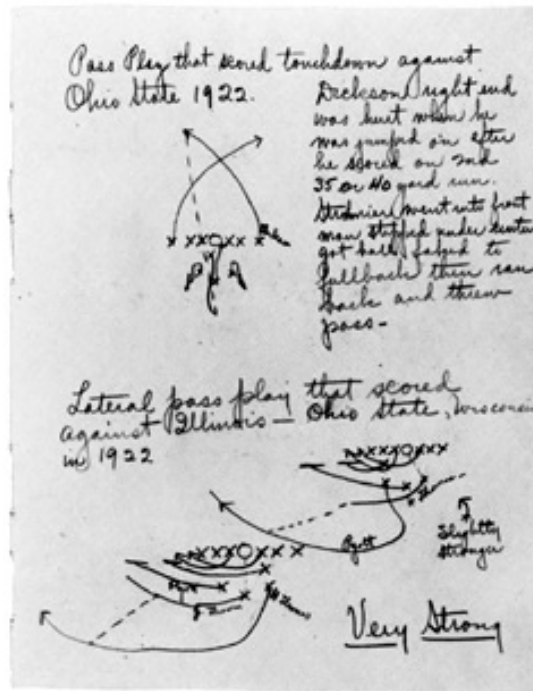 Pass Play that scored touchdown against
Ohio State 1922.
Dickson right end
was hurt when he
was jumped on after
he scored on 2nd
35 or 40 yard run.
went into front
man stepped under center
got ball faked to
fullback then ran
back and threw
pass-
Lateral pass play that scored
against Illinois - Ohio State, Wisconsin
in 1922
Slightly
stronger
Very Strong